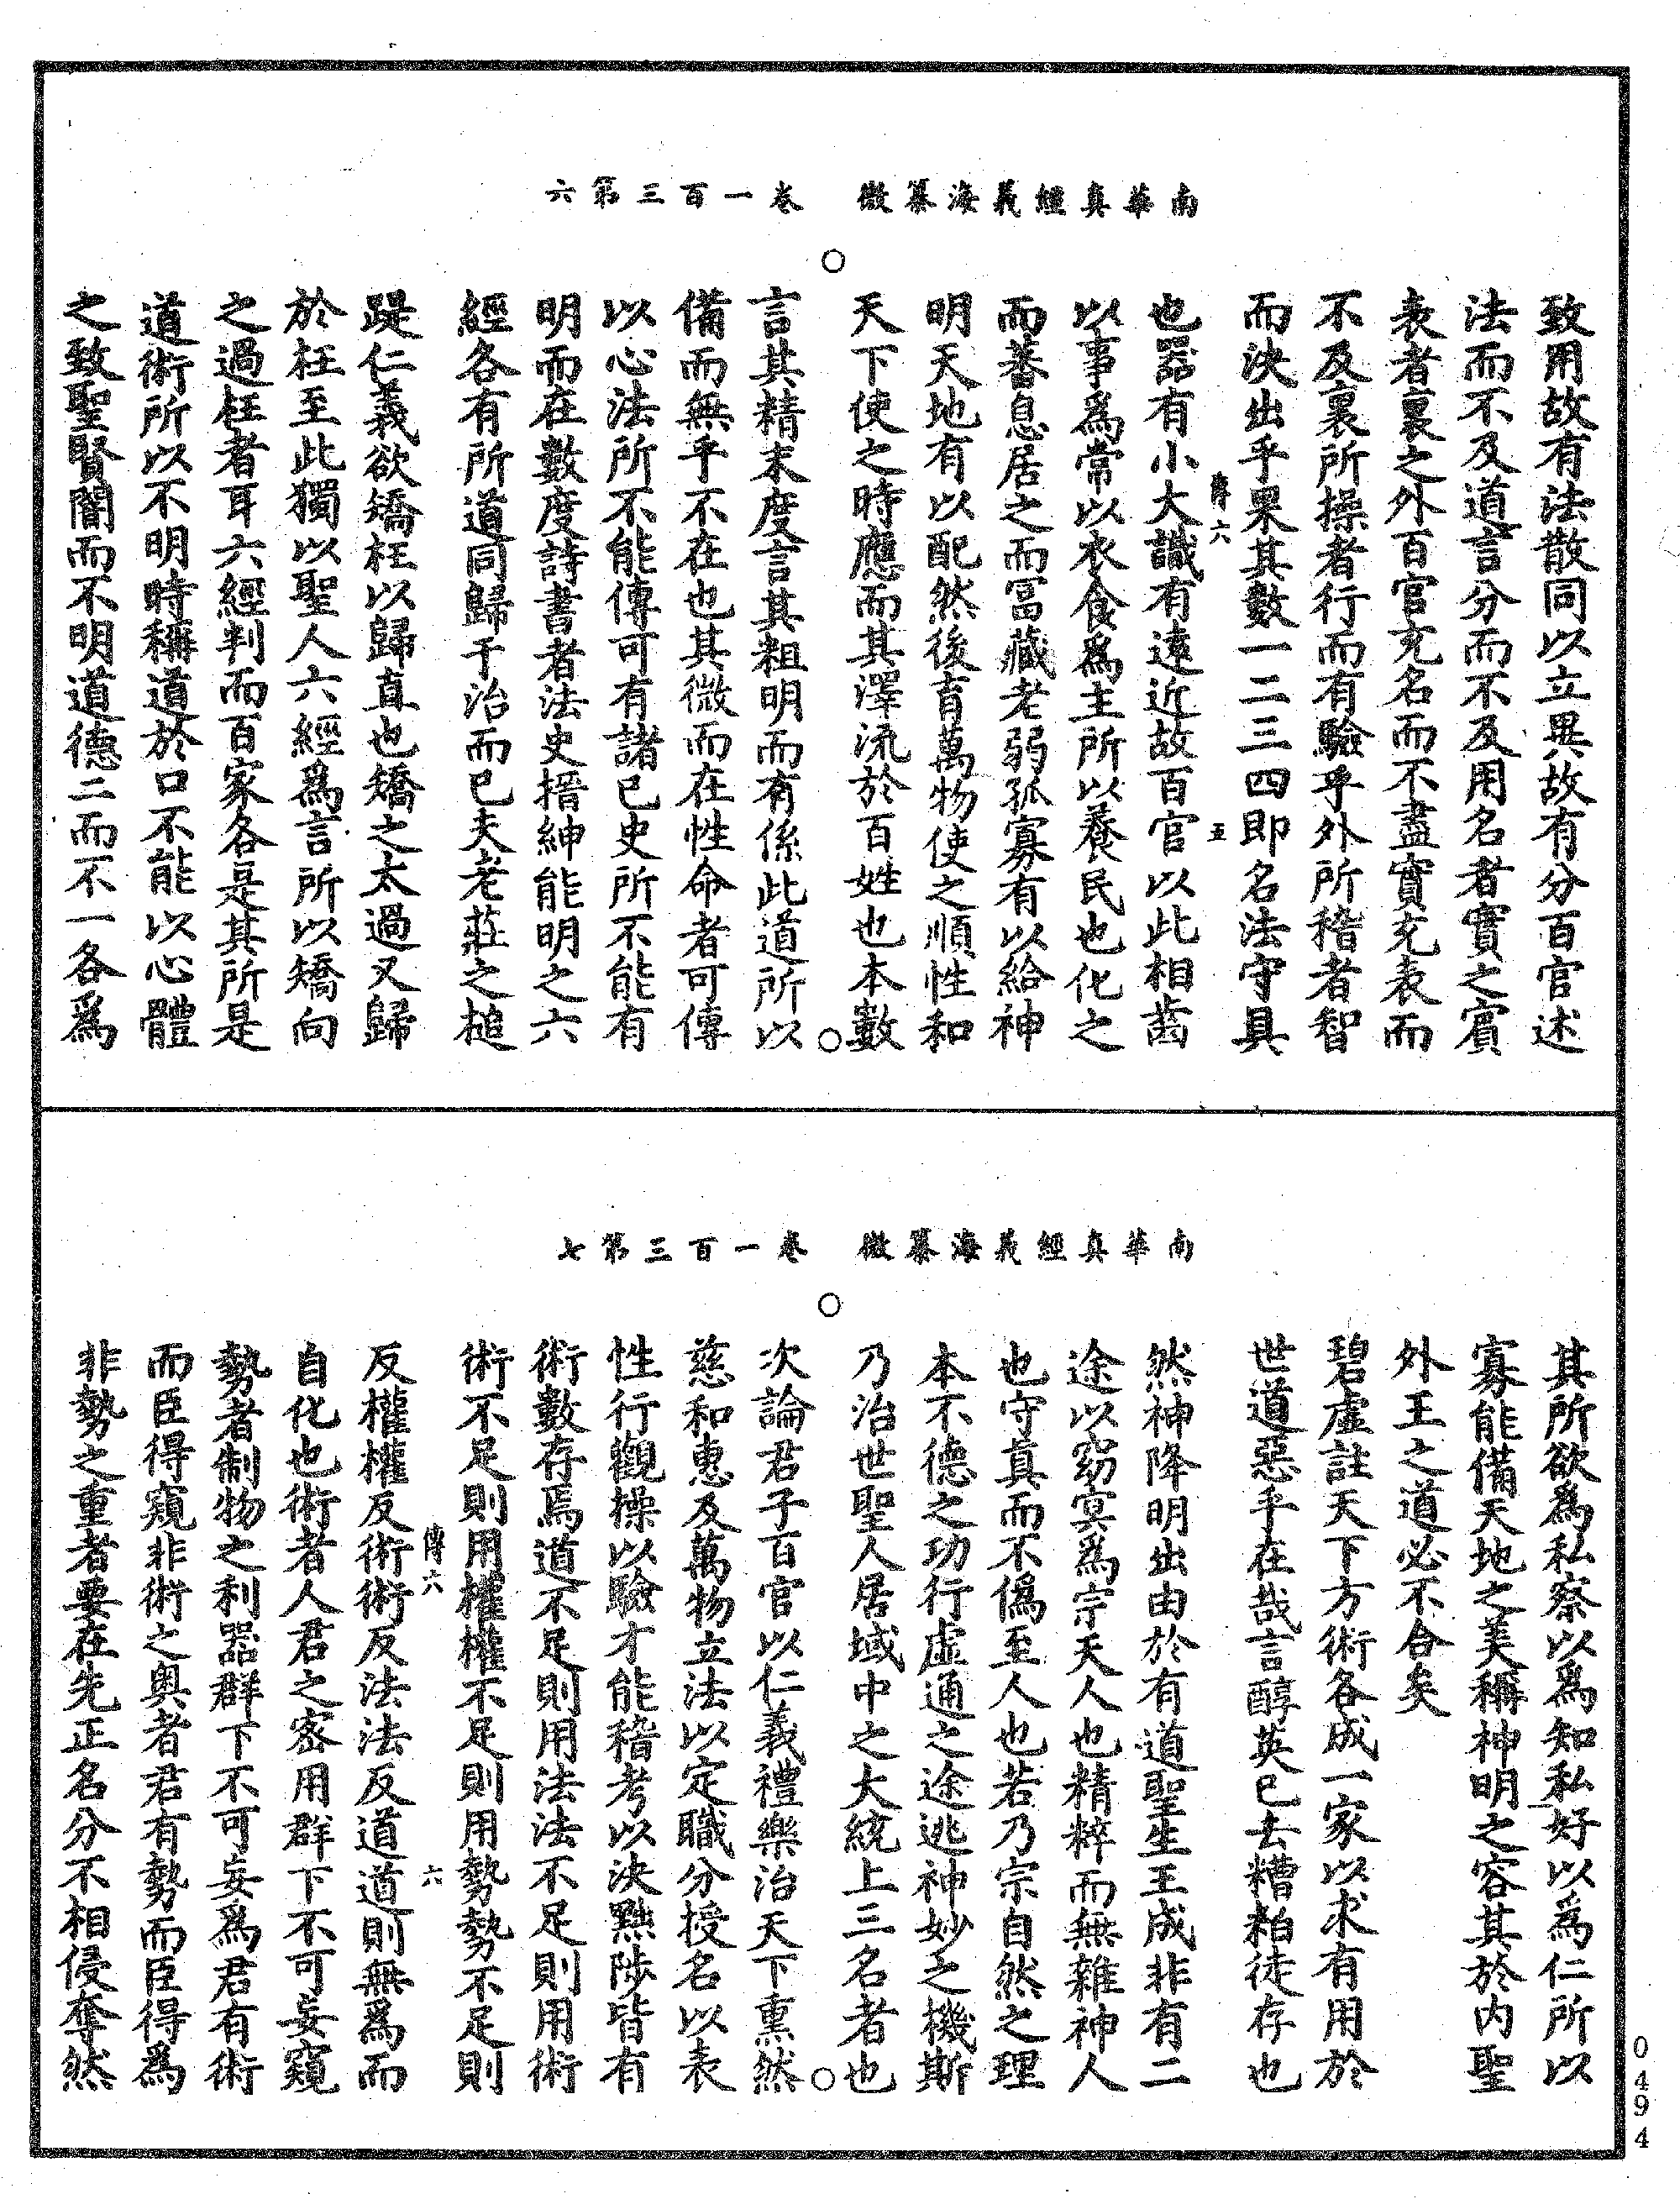 南華真經義海纂微　卷一百三第六
致用故有法散同以立異故有分百官述
法而不及道言分而不及用名者實之賓
表者裏之外百官充名而不盡實充表而
不及裏所操者行而有驗乎外所稽者智
而決出乎果其數一二三四即名法守具
傳六　五
也器有小大識有遠近故百官以此相齒
以事爲常以衣食爲主所以養民也化之
而蕃息居之而畐藏老弱孤寡有以給神
明天地有以配然後育萬物使之順性和
天下使之時應而其澤流於百姓也本數
言其精末度言其粗明而有係此道所以
備而無乎不在也其微而在性命者可傳
以心法所不能傳可有諸已史所不能有
明而在數度詩書者法史搢紳能明之六
經各有所道同歸于治而已夫老莊之槌
踶仁義欲矯枉以歸真也矯之太過又歸
於枉至此獨以聖人六經爲言所以矯向
之過枉者耳六經判而百家各是其所是
道術所以不明時稱道於口不能以心體
之致聖賢闇而不明道德二而不一各爲
南華真經義海纂微　卷一百三第七
其所欲爲私察以爲知私好以爲仁所以
寡能備天地之美稱神明之容其於内聖
外王之道必不合矣
碧虛註天下方術各成一家以求有用於
世道惡乎在哉言醇英已去糟粕徒存也
然神降明出由於有道聖生王成非有二
途以窈冥爲宗天人也精粹而無雜神人
也守真而不僞至人也若乃宗自然之理
本不德之功行虛通之途逃神妙之機斯
乃治世聖人居域中之大統上三名者也
次論君子百官以仁義禮樂治天下熏然
慈和惠及萬物立法以定職分授名以表
性行觀操以驗才能稽考以決黜陟皆有
術數存焉道不足則用法法不足則用術
術不足則用權權不足則用勢勢不足則
傳六　六
反權權反術術反法法反道道則無爲而
自化也術者人君之密用群下不可妄窺
勢者制物之利器群下不可妄爲君有術
而臣得窺非術之奥者君有勢而臣得爲
非勢之重者要在先正名分不相侵奪然
0494